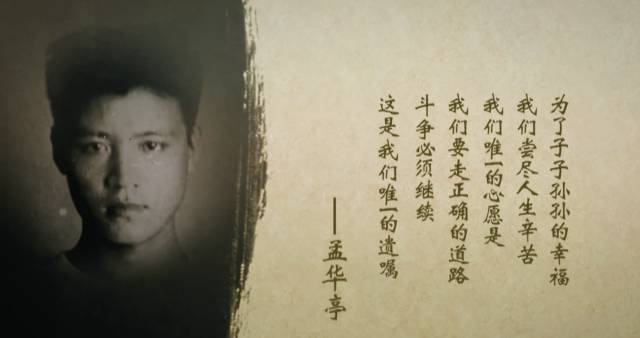 为了子子孙孙的幸福
我们尝尽人生辛苦
我们唯一的心愿是
我们要走正确的道路
斗争必须继续
这是我们唯一的遗嘱
——孟华亭